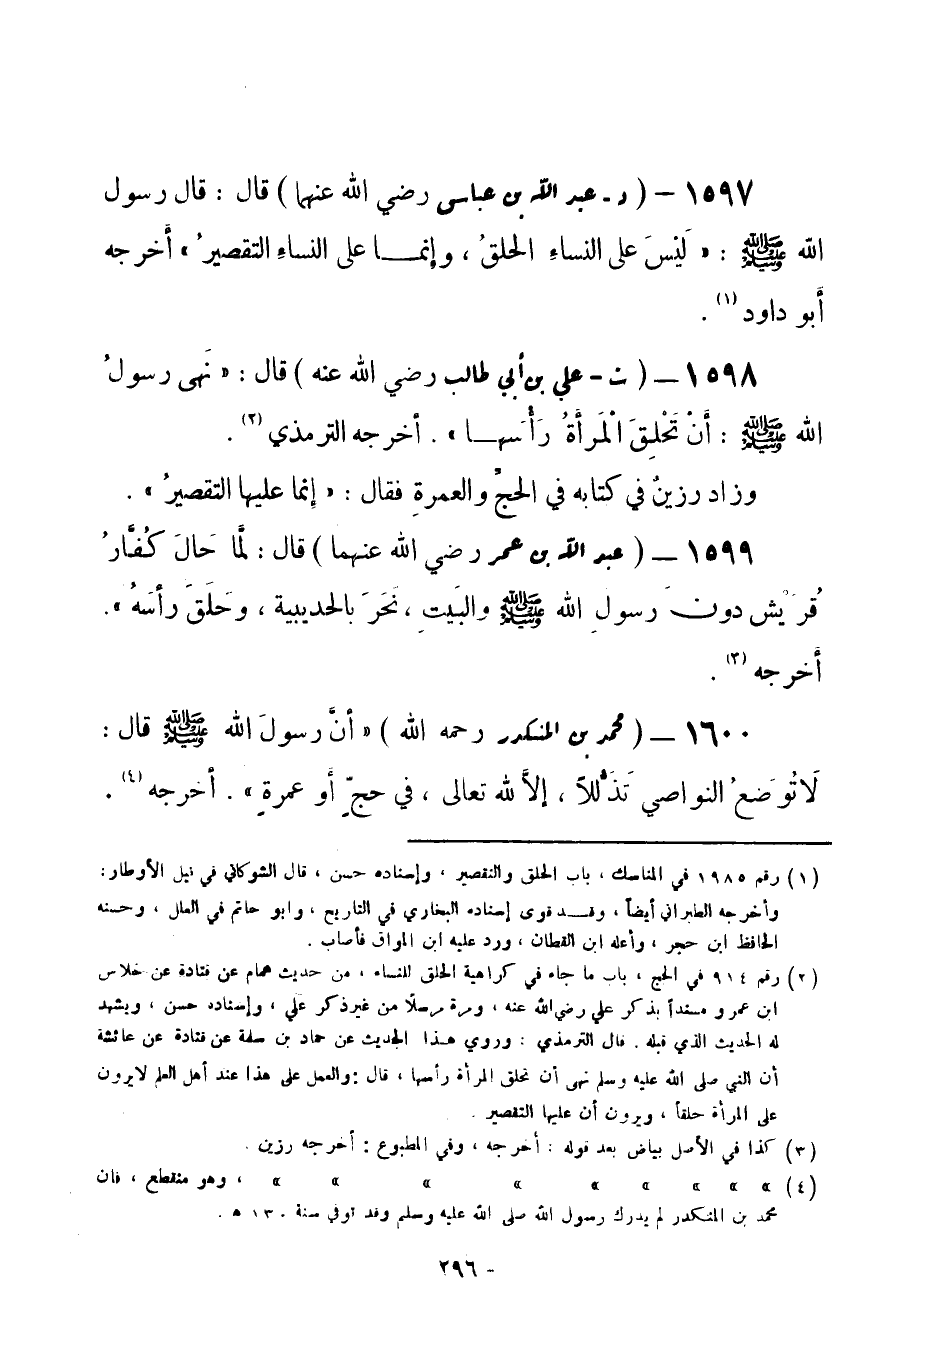 ١٥٩٧ – ( د ـ عبد الله بن عباس رضي الله عنهما ) قال : قال رسول
الله ﷺ : « لَيْسَ على النساءِ الحلقُ ، وإنمـــا على النساءِ التقصيرُ » أخرجه
أبو داود (١) .
١٥٩٨ – ( ت – علي بن أبي طالب رضي الله عنه ) قال : « نَهى رسولُ
الله ﷺ : أَنْ تَحْلِقَ الْمَرأَةُ رَأْسَهـــا » . أخرجه الترمذي (٢) .
وزاد رزينٌ في كتابه في الحجِّ والعمرةِ فقال : « إِنما عليها التقصيرُ » .
١٥٩٩ – ( عبد الله بن عمر رضي الله عنهما ) قال : لمَّا حَالَ كُفَّارُ
قُرَيْش دونَ رسولِ الله ﷺ والبَيتِ ، نَحَرَ بالحديبية ، وحَلَقَ رأسَهُ » .
أخرجه (٣) .
١٦٠٠ – ( محمد بن المنكدر رحمه الله ) « أنَّ رسولَ الله ﷺ قال :
لَا تُوَضَعُ النواصي تَذَلُّلاً ، إلاَّ لله تعالى ، في حجٍّ أو عمرةٍ » . أخرجه (٤) .
(١) رقم ١٩٨٥ في المناسك ، باب الحلق والتقصير ، وإسناده حسن ، قال الشوكاني في نيل الأوطار :
وأخرجه الطبراني أيضاً ، وقـــد قوى إسناده البخاري في التاريخ ، وابو حاتم في العلل ، وحسنه
الحافظ ابن حجر ، وأعله ابن القطان ، ورد عليه ابن المواق فأصاب .
(٢) رقم ٩١٤ في الحج ، باب ما جاء في كراهية الحلق للنساء ، من حديث همام عن قتادة عن خلاس
ابن عمرو مسنداً بذكر علي رضي الله عنه ، ومرة مرسلاً من غير ذكر علي ، وإسناده حسن ، ويشهد
له الحديث الذي قبله . قال الترمذي : وروي هـذا الحديث عن حماد بن سلمة عن قتادة عن عائشة
أن النبي صلى الله عليه وسلم نهى أن تحلق المرأة رأسها ، قال : والعمل على هذا عند أهل العلم لا يرون
على المرأة حلقاً ، ويرون أن عليها التقصير .
(٣) كذا في الأصل بياض بعد قوله : أخرجه ، وفي المطبوع : أخرجه رزين .
(٤) » » » » » » » » » ، وهو منقطع ، فان
محمد بن المنكدر لم يدرك رسول الله صلى الله عليه وسلم وقد توفي سنة ١٣٠ ه .
– ٢٩٦